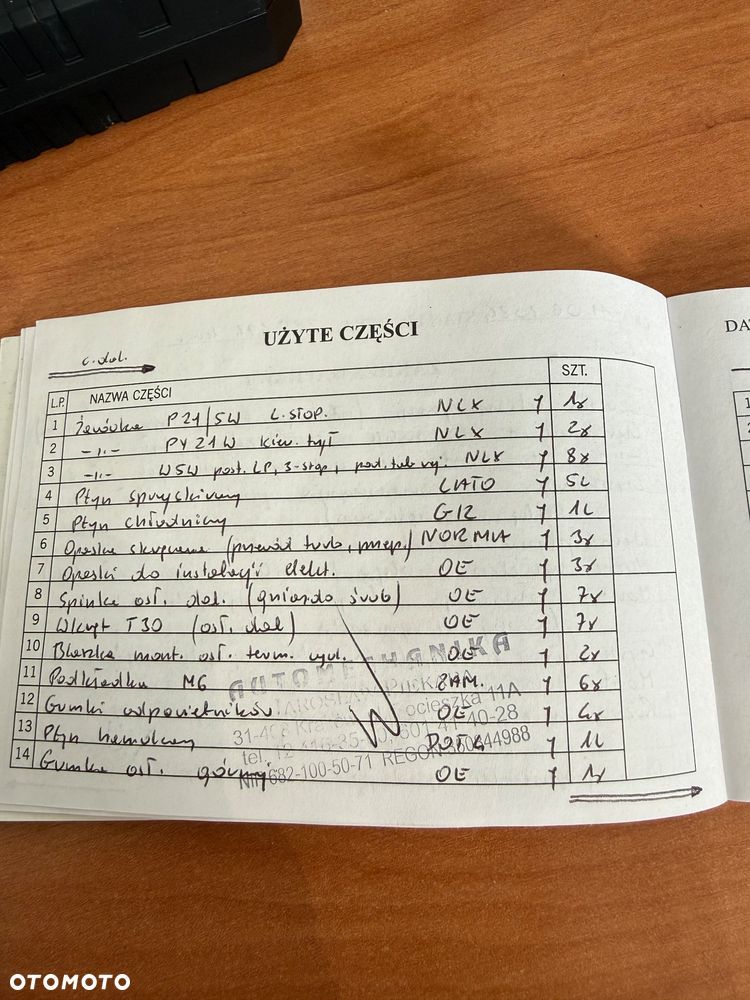 UŻYTE CZĘŚCI
c.dal.
L.P. NAZWA CZĘŚCI SZT.
1 Żarówka P21/5W L.stop. NLX 1x
2 -,,- PY21W kier. tył NLX 2x
3 -,,- W5W post. LP, 3-stop, NLX 8x
4 Płyn spryskiwaczy LATO 5L
5 Płyn chłodniczy G12 1L
6 Opaska skręcana (przewód turb, przep.) NORMA 3x
7 Opaski do instalacji elekt. OE 3x
8 Spinka osł. dol. (gniazdo śrub) OE 7x
9 Wkręt T30 (osł. dol) OE 7x
10 Blaszka mont. osł. term. wyd. OE 2x
11 Podkładka M6 ZAM. 6x
12 Gumki odpowietników OE 4x
13 Płyn hamulcowy DOT4 1L
14 Gumka osł. górnej OE 1x
AUTOMECHANIKA
11A
31-4
tel. 12 40-28
NIP 682-100-50-71 REGON
DA
1
2
OTOMOTO